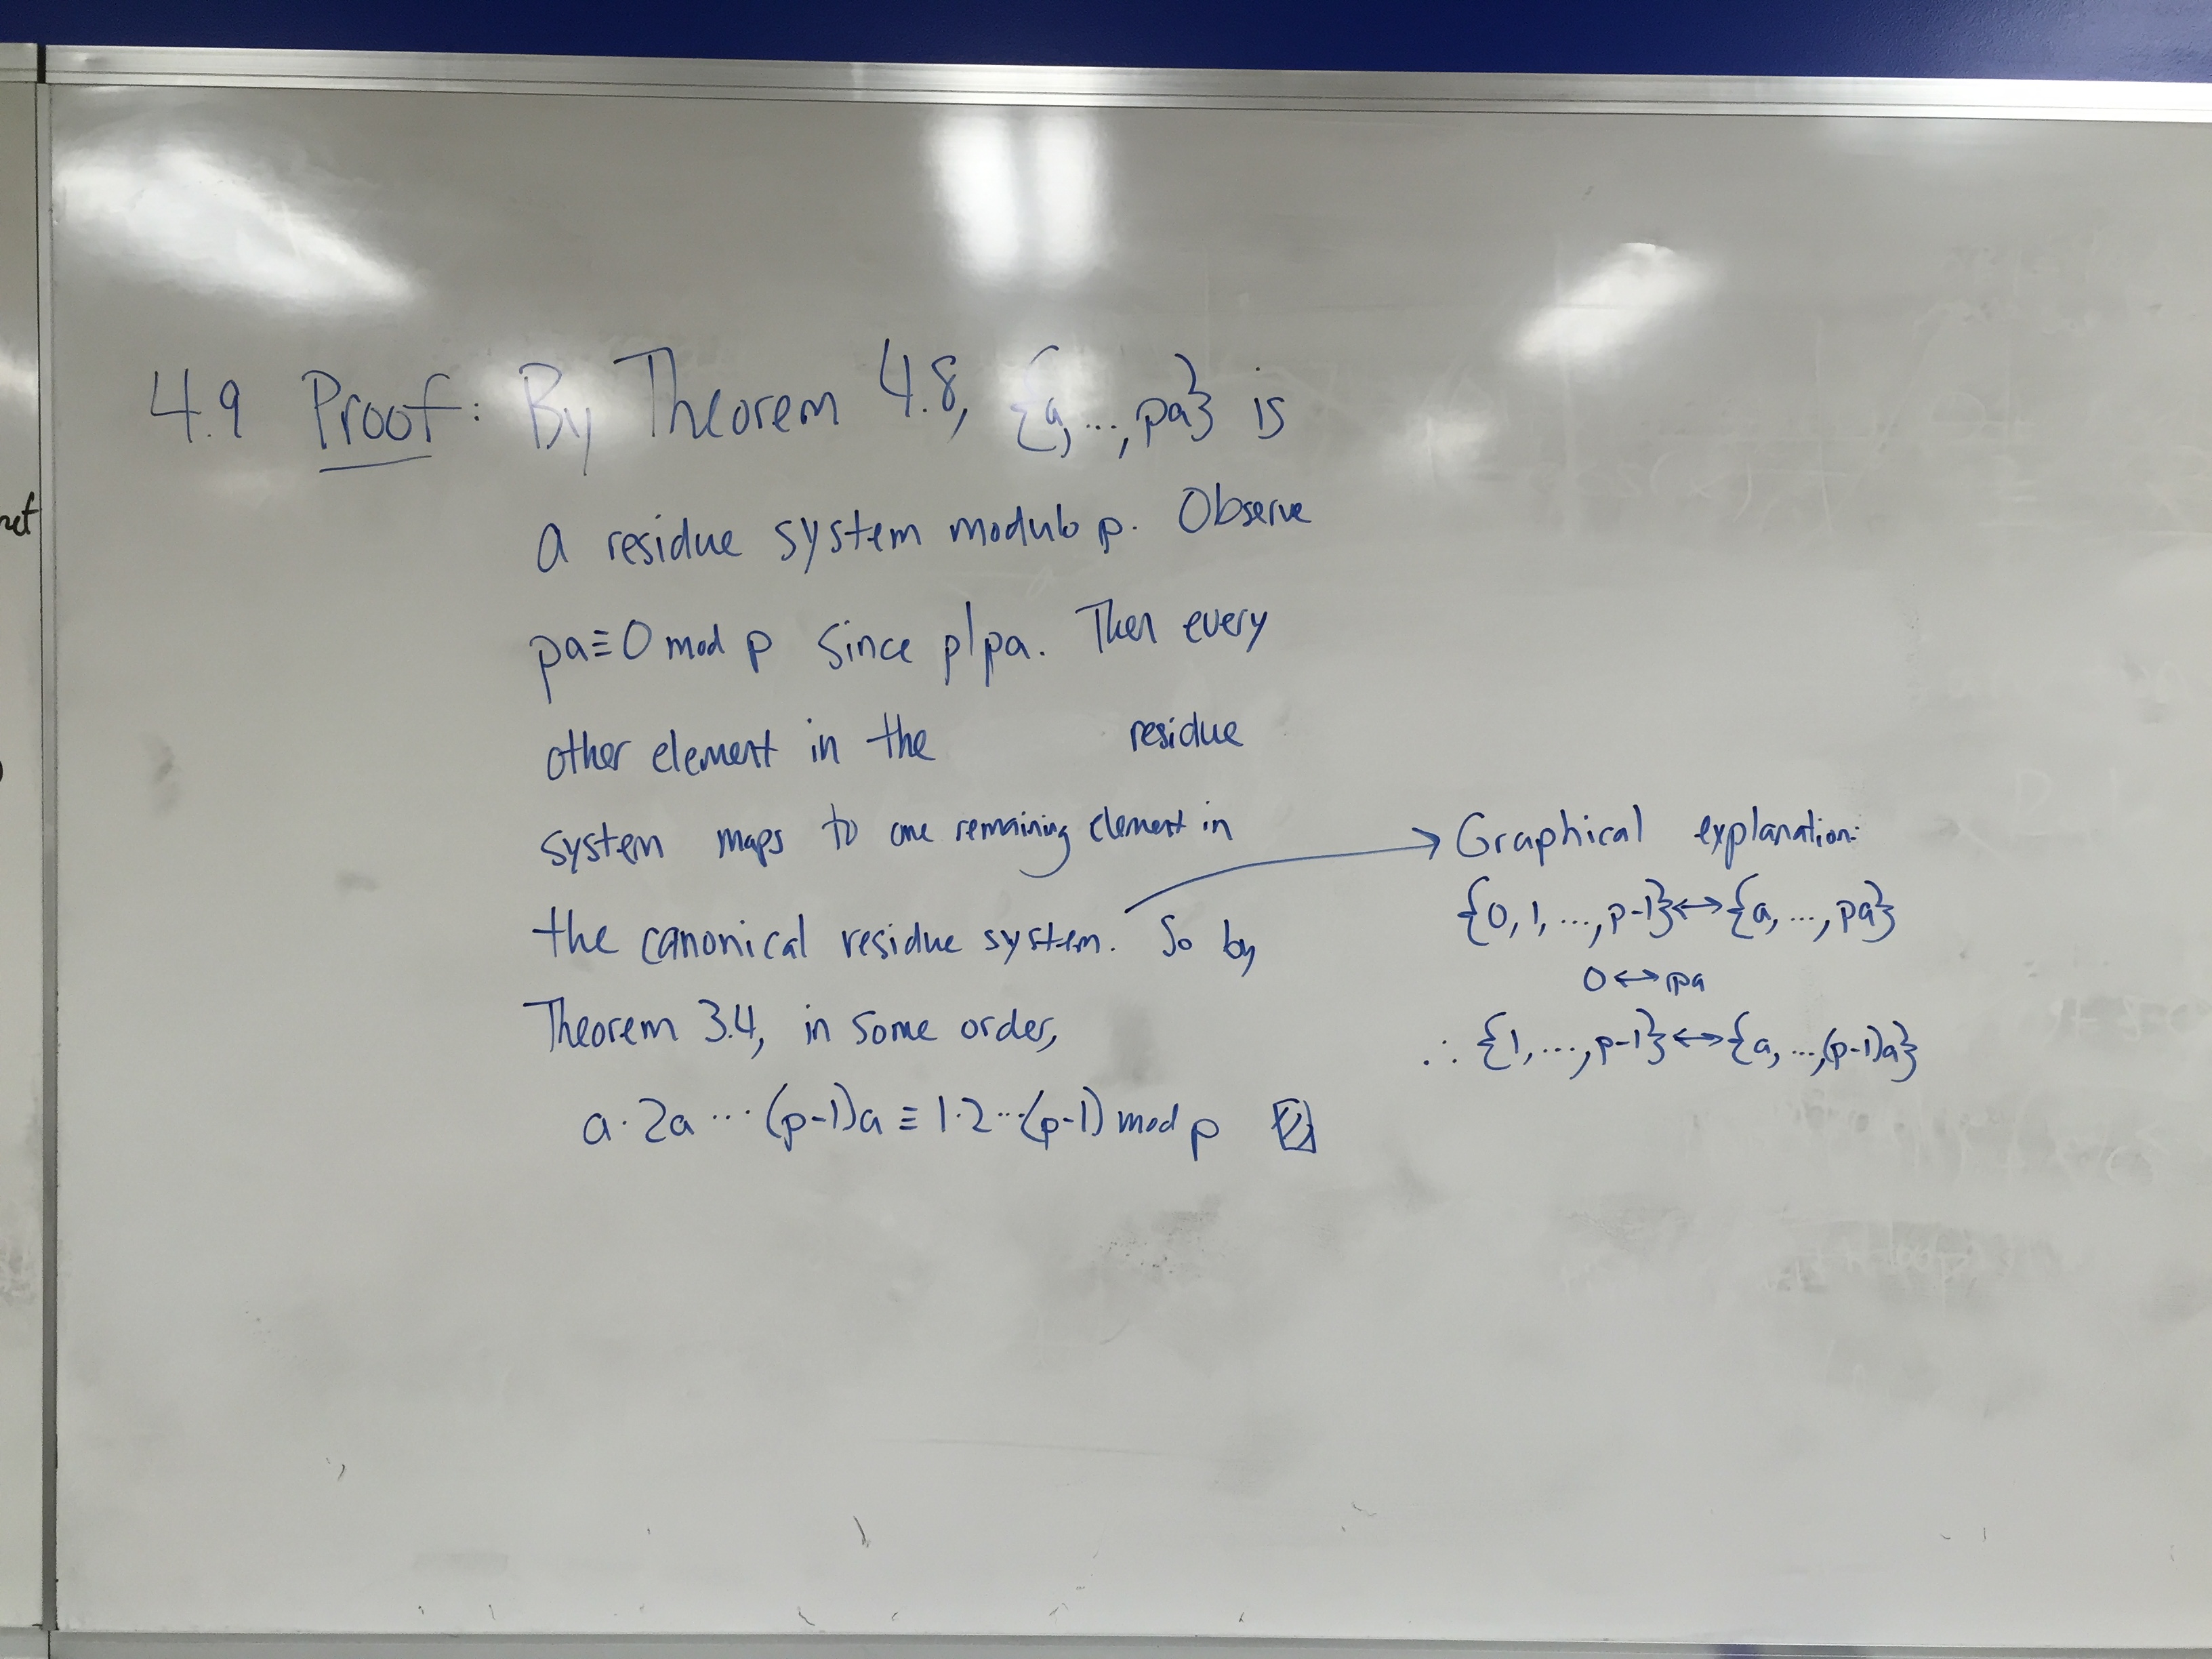 4.9 Proof: By Theorem 4.8, {a, ..., pa} is
a residue system modulo p. Observe
pa ≡ 0 mod p since p|pa. Then every
other element in the residue
system maps to one remaining element in
the canonical residue system. So by
Theorem 3.4, in some order,
a·2a ··· (p-1)a ≡ 1·2···(p-1) mod p
→ Graphical explanation:
{0, 1, ..., p-1} ↔ {a, ..., pa}
0 ↔ pa
∴ {1, ..., p-1} ↔ {a, ..., (p-1)a}